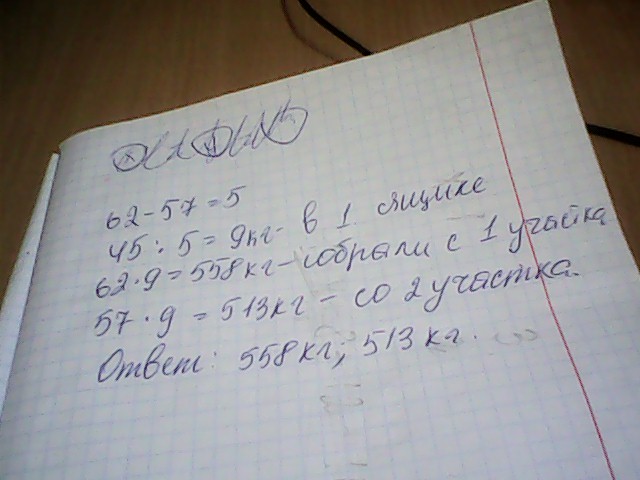 62-57=5
45:5=9кг- в 1 ящике
62·9=558кг-собрали с 1 участка
57·9=513кг - со 2 участка.
Ответ: 558кг; 513кг.